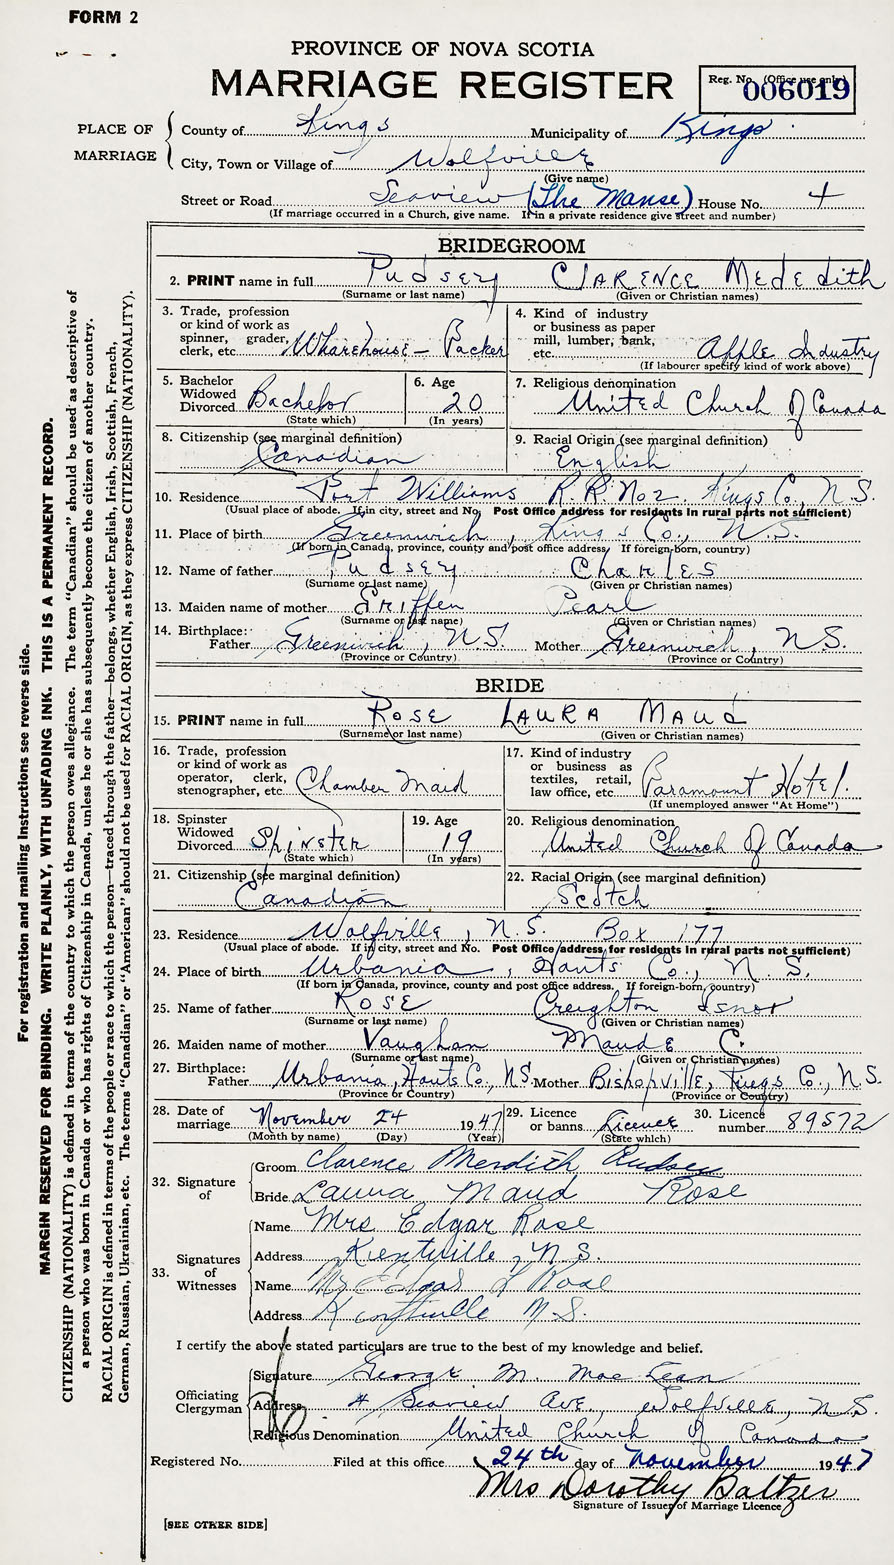 FORM 2
PROVINCE OF NOVA SCOTIA
MARRIAGE REGISTER
Reg. No. (Office use only)
006019
PLACE OF MARRIAGE
County of Kings Municipality of Kings
City, Town or Village of Wolfville
(Give name)
Street or Road Seaview (The Manse) House No. 4
(If marriage occurred in a Church, give name. If in a private residence give street and number)
BRIDEGROOM
2. PRINT name in full Pudsey CLARENCE MEDEDith
(Surname or last name) (Given or Christian names)
3. Trade, profession or kind of work as spinner, grader, clerk, etc. Wharehouse - Packer
4. Kind of industry or business as paper mill, lumber, bank, etc. Apple Industry
(If labourer specify kind of work above)
5. Bachelor Widowed Divorced Bachelor
(State which)
6. Age 20
(In years)
7. Religious denomination United Church of Canada
8. Citizenship (see marginal definition) Canadian
9. Racial Origin (see marginal definition) English
10. Residence Port Williams R.R. No 2 Kings Co., N.S.
(Usual place of abode. If in city, street and No. Post Office address for residents in rural parts not sufficient)
11. Place of birth Greenwich, King's Co., N.S.
(If born in Canada, province, county and post office address. If foreign-born, country)
12. Name of father Pudsey Charles
(Surname or last name) (Given or Christian names)
13. Maiden name of mother Griffen Pearl
(Surname or last name) (Given or Christian names)
14. Birthplace: Father Greenwich, N.S. Mother Greenwich, N.S.
(Province or Country) (Province or Country)
BRIDE
15. PRINT name in full Rose LAURA MAUd
(Surname or last name) (Given or Christian names)
16. Trade, profession or kind of work as operator, clerk, stenographer, etc. Chamber Maid
17. Kind of industry or business as textiles, retail, law office, etc. Paramount Hotel.
(If unemployed answer "At Home")
18. Spinster Widowed Divorced Spinster
(State which)
19. Age 19
(In years)
20. Religious denomination United Church of Canada
21. Citizenship (see marginal definition) Canadian
22. Racial Origin (see marginal definition) Scotch
23. Residence Wolfville, N.S. Box 177
(Usual place of abode. If in city, street and No. Post Office address for residents in rural parts not sufficient)
24. Place of birth Urbania, Hants Co., N.S.
(If born in Canada, province, county and post office address. If foreign-born, country)
25. Name of father Rose Creighton Isnor
(Surname or last name) (Given or Christian names)
26. Maiden name of mother Vaughan Maude C.
(Surname or last name) (Given or Christian names)
27. Birthplace: Father Urbania, Hants Co., N.S. Mother Bishopville, Kings Co., N.S.
(Province or Country) (Province or Country)
28. Date of marriage November 24 1947
(Month by name) (Day) (Year)
29. Licence or banns Licence
(State which)
30. Licence number 89572
32. Signature of
Groom Clarence Merdith Pudsey
Bride Laura Maud Rose
33. Signatures of Witnesses
Name Mrs Edgar Rose
Address Kentville, N.S.
Name Mr Edgar L Rose
Address Kentville N.S.
I certify the above stated particulars are true to the best of my knowledge and belief.
Officiating Clergyman
Signature George M. MacLean
Address 4 Seaview Ave., Wolfville, N.S.
Religious Denomination United Church of Canada
Registered No. Filed at this office 24th day of November 1947
Mrs Dorothy Baltzer
Signature of Issuer of Marriage Licence
[SEE OTHER SIDE]
For registration and mailing instructions see reverse side.
MARGIN RESERVED FOR BINDING. WRITE PLAINLY, WITH UNFADING INK. THIS IS A PERMANENT RECORD.
CITIZENSHIP (NATIONALITY) is defined in terms of the country to which the person owes allegiance. The term "Canadian" should be used as descriptive of
a person who was born in Canada or who has rights of Citizenship in Canada, unless he or she has subsequently become the citizen of another country.
RACIAL ORIGIN is defined in terms of the people or race to which the person—traced through the father—belongs, whether English, Irish, Scottish, French,
German, Russian, Ukrainian, etc. The terms "Canadian" or "American" should not be used for RACIAL ORIGIN, as they express CITIZENSHIP (NATIONALITY).